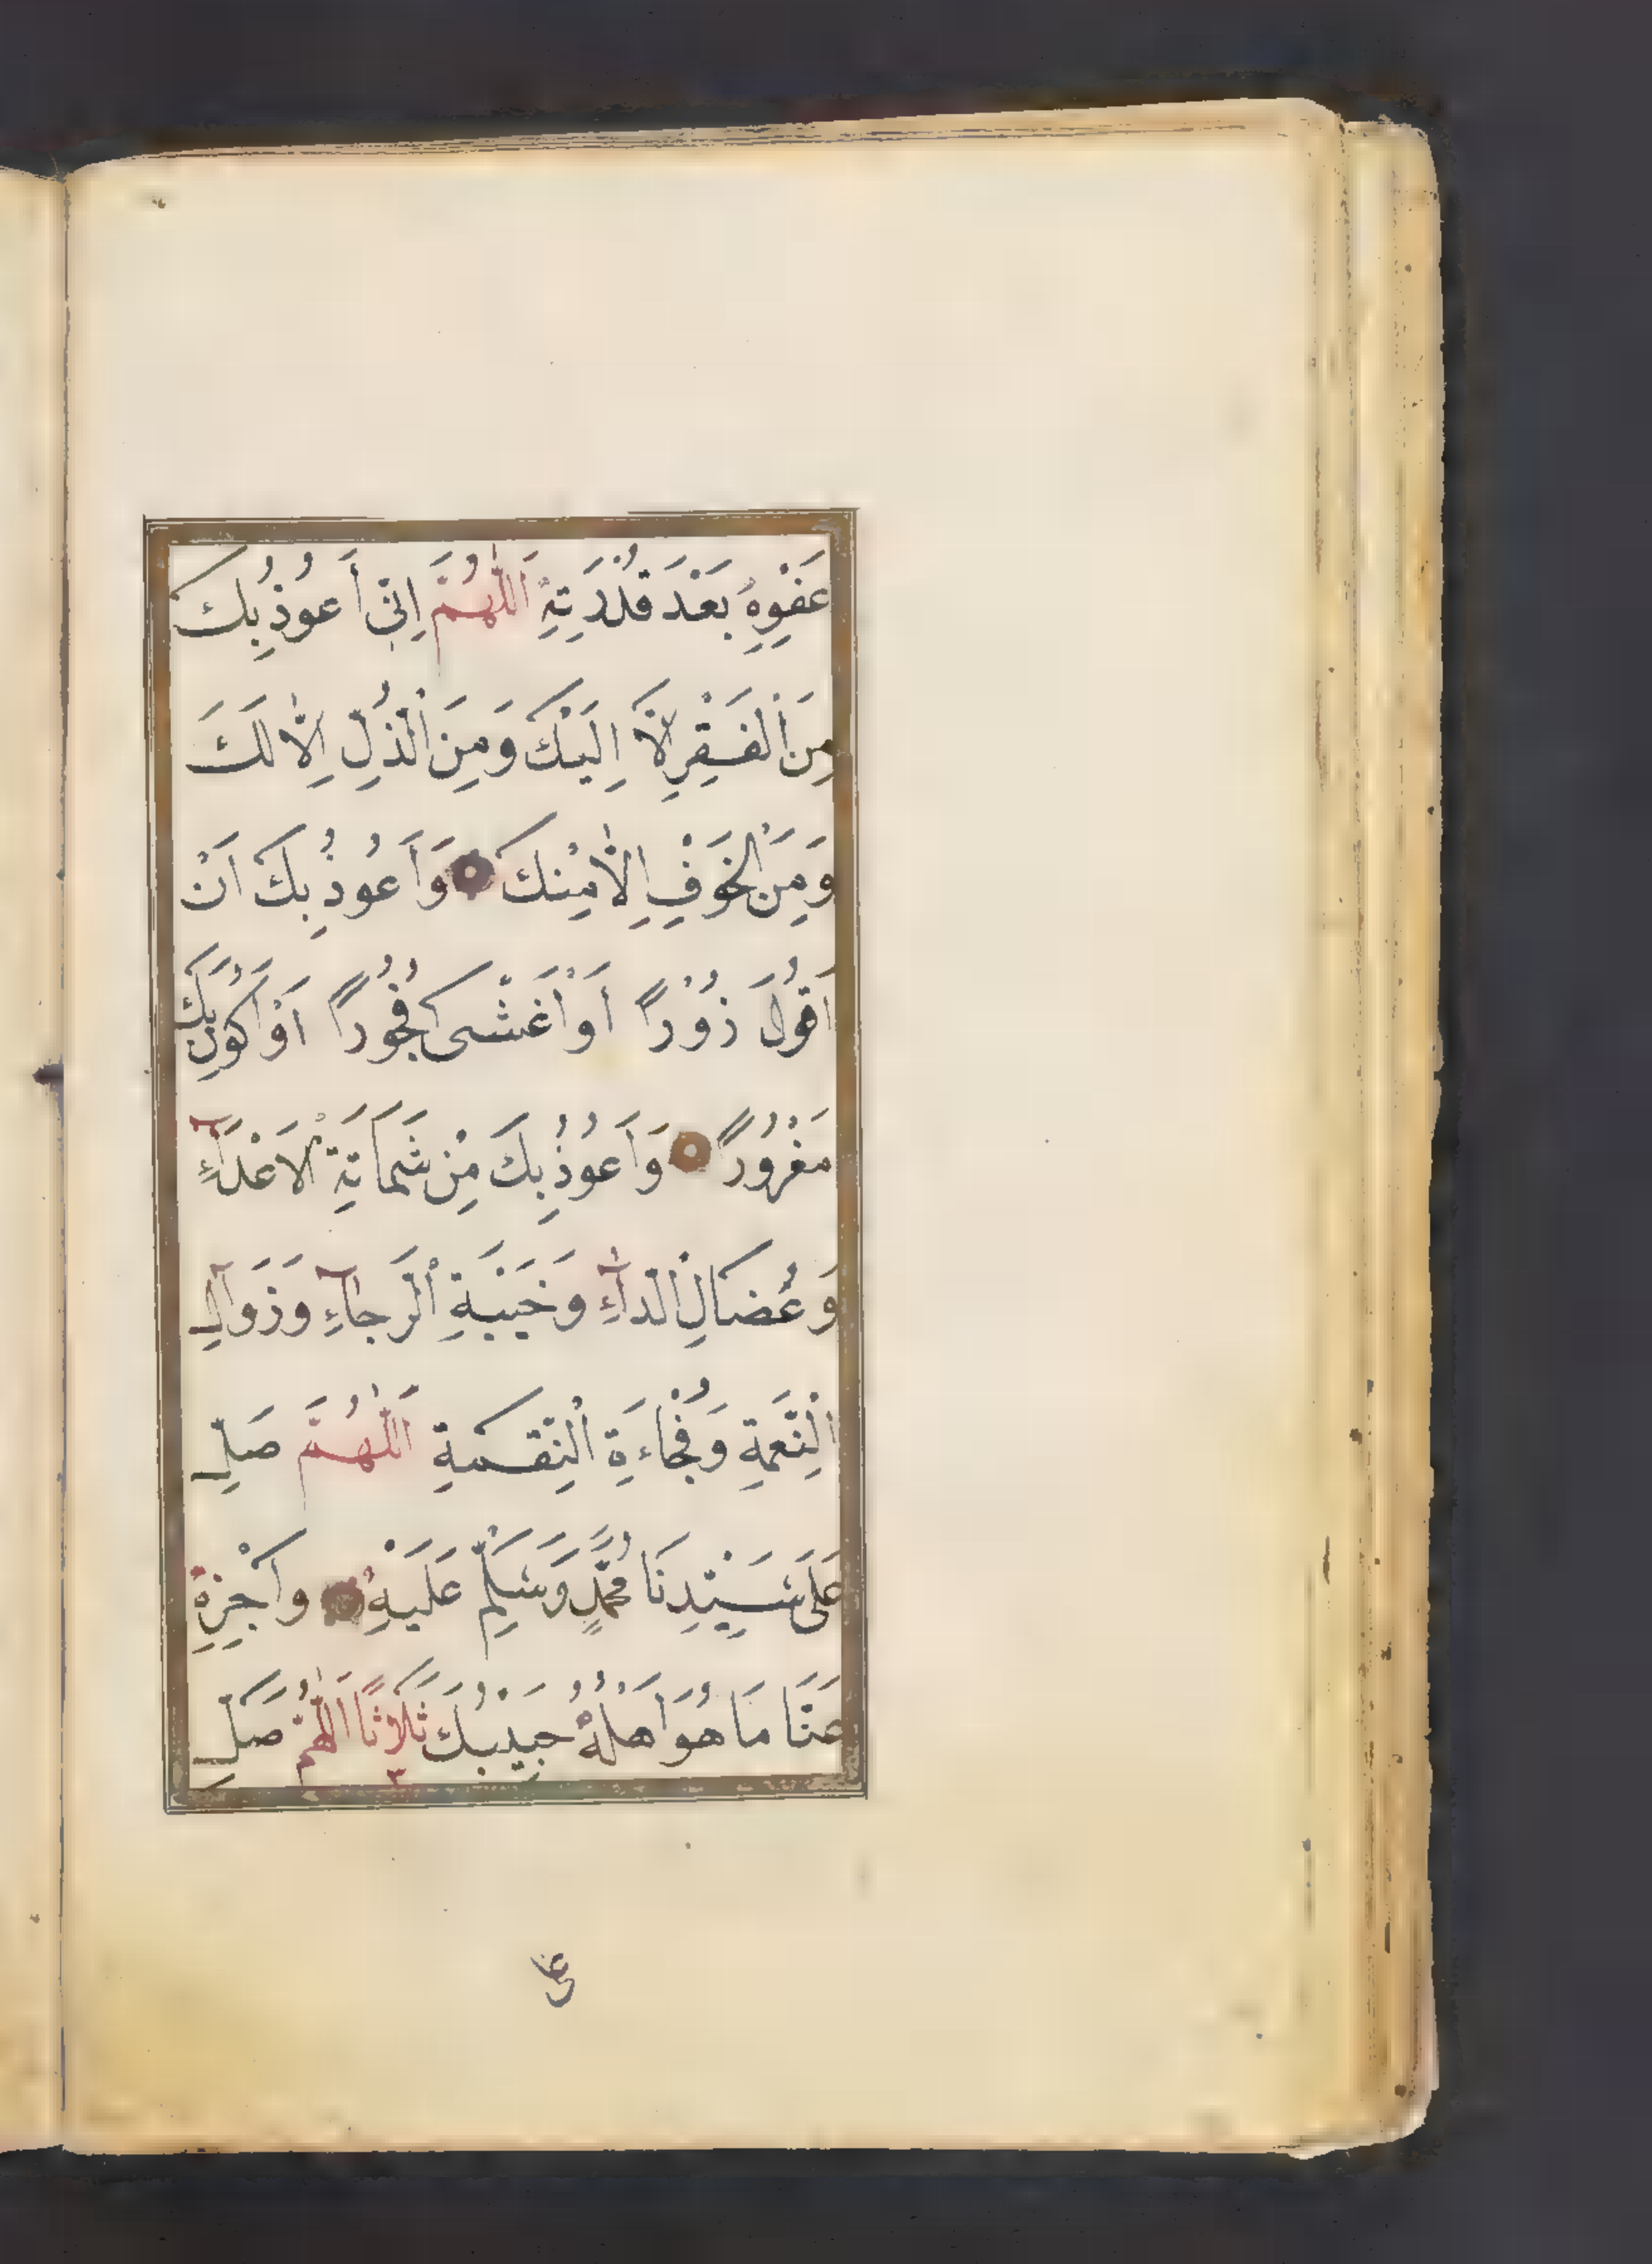 عَفْوِهِ بَعْدَ قُدْرَتِهِ اَللّٰهُمَّ اِنّٖي أَعُوذُ بِكَ
مِنَ الْفَقْرِ اِلَّا اِلَيْكَ وَمِنَ الْذُلِّ اِلَّا لَكَ
وَمِنَ الْخَوْفِ اِلَّا مِنْكَ وَاَعُوذُ بِكَ اَنْ
اَقُولَ زُوْرًا اَوْ اَغْشٰى فُجُورًا اَوْ اَكُونَ بِكَ
مَغْرُورًا وَاَعُوذُ بِكَ مِنْ شَمَاتَةِ الْاَعْدَآءِ
وَعُضَالِ الْدَّآءِ وَخَيْبَةِ الْرَّجَآءِ وَزَوَالِ
الْنِّعْمَةِ وَفُجْاءَةِ الْنِقْمَةِ اَللّٰهُمَّ صَلِّ
عَلَى سَيِّدِنَا مُحَمَّدٍ وَسَلِّمْ عَلَيْهِ وَاَجْزِهِ
عَنَّا مَا هُوَ اَهْلُهُ حَبِيْبُكَ ثَلَاثًا اَللّٰهُمَّ صَلِّ
٣
على